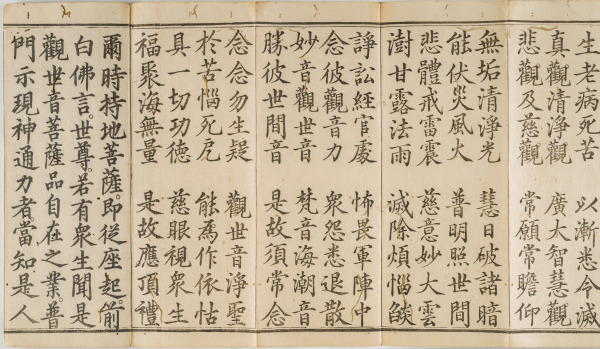 生老病死苦　以漸悉令滅
真觀清淨觀　廣大智慧觀
悲觀及慈觀　常願常瞻仰
無垢清淨光　慧日破諸暗
能伏災風火　普明照世間
悲體戒雷震　慈意妙大雲
澍甘露法雨　滅除煩惱燄
諍訟經官處　怖畏軍陣中
念彼觀音力　衆怨悉退散
妙音觀世音　梵音海潮音
勝彼世間音　是故須常念
念念勿生疑　觀世音淨聖
於苦惱死厄　能爲作依怙
具一切功德　慈眼視衆生
福聚海無量　是故應頂禮
爾時持地菩薩。即從座起。前
白佛言。世尊。若有衆生聞是
觀世音菩薩品自在之業。普
門示現神通力者。當知是人